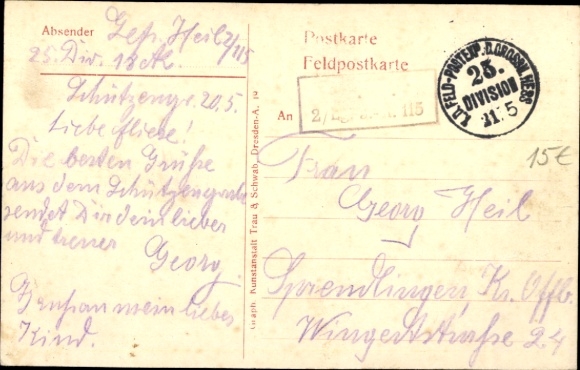 Absender Gefr. Heil 2/115
25. Div. 18 A.K.
Schützengr. 20.5.
Liebe Aliese!
Die besten Grüße
aus dem Schützengrabe
sendet Dir dein lieber
und treuer
Georg
Gruß an mein liebes
Kind.
Postkarte
Feldpostkarte
K.D. FELD-POSTEXP. D. GROSSH. HESS.
25.
DIVISION
21. 5
2/ 115
An
15€
Frau
Georg Heil
Sprendlingen Kr. Offb.
Wingertstraße 24
Graph. Kunstanstalt Trau & Schwab, Dresden-A. 19